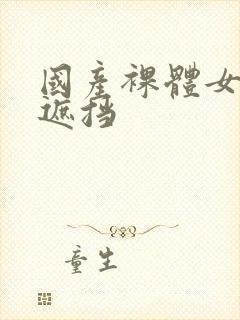 國產裸體女
遮挡
童生